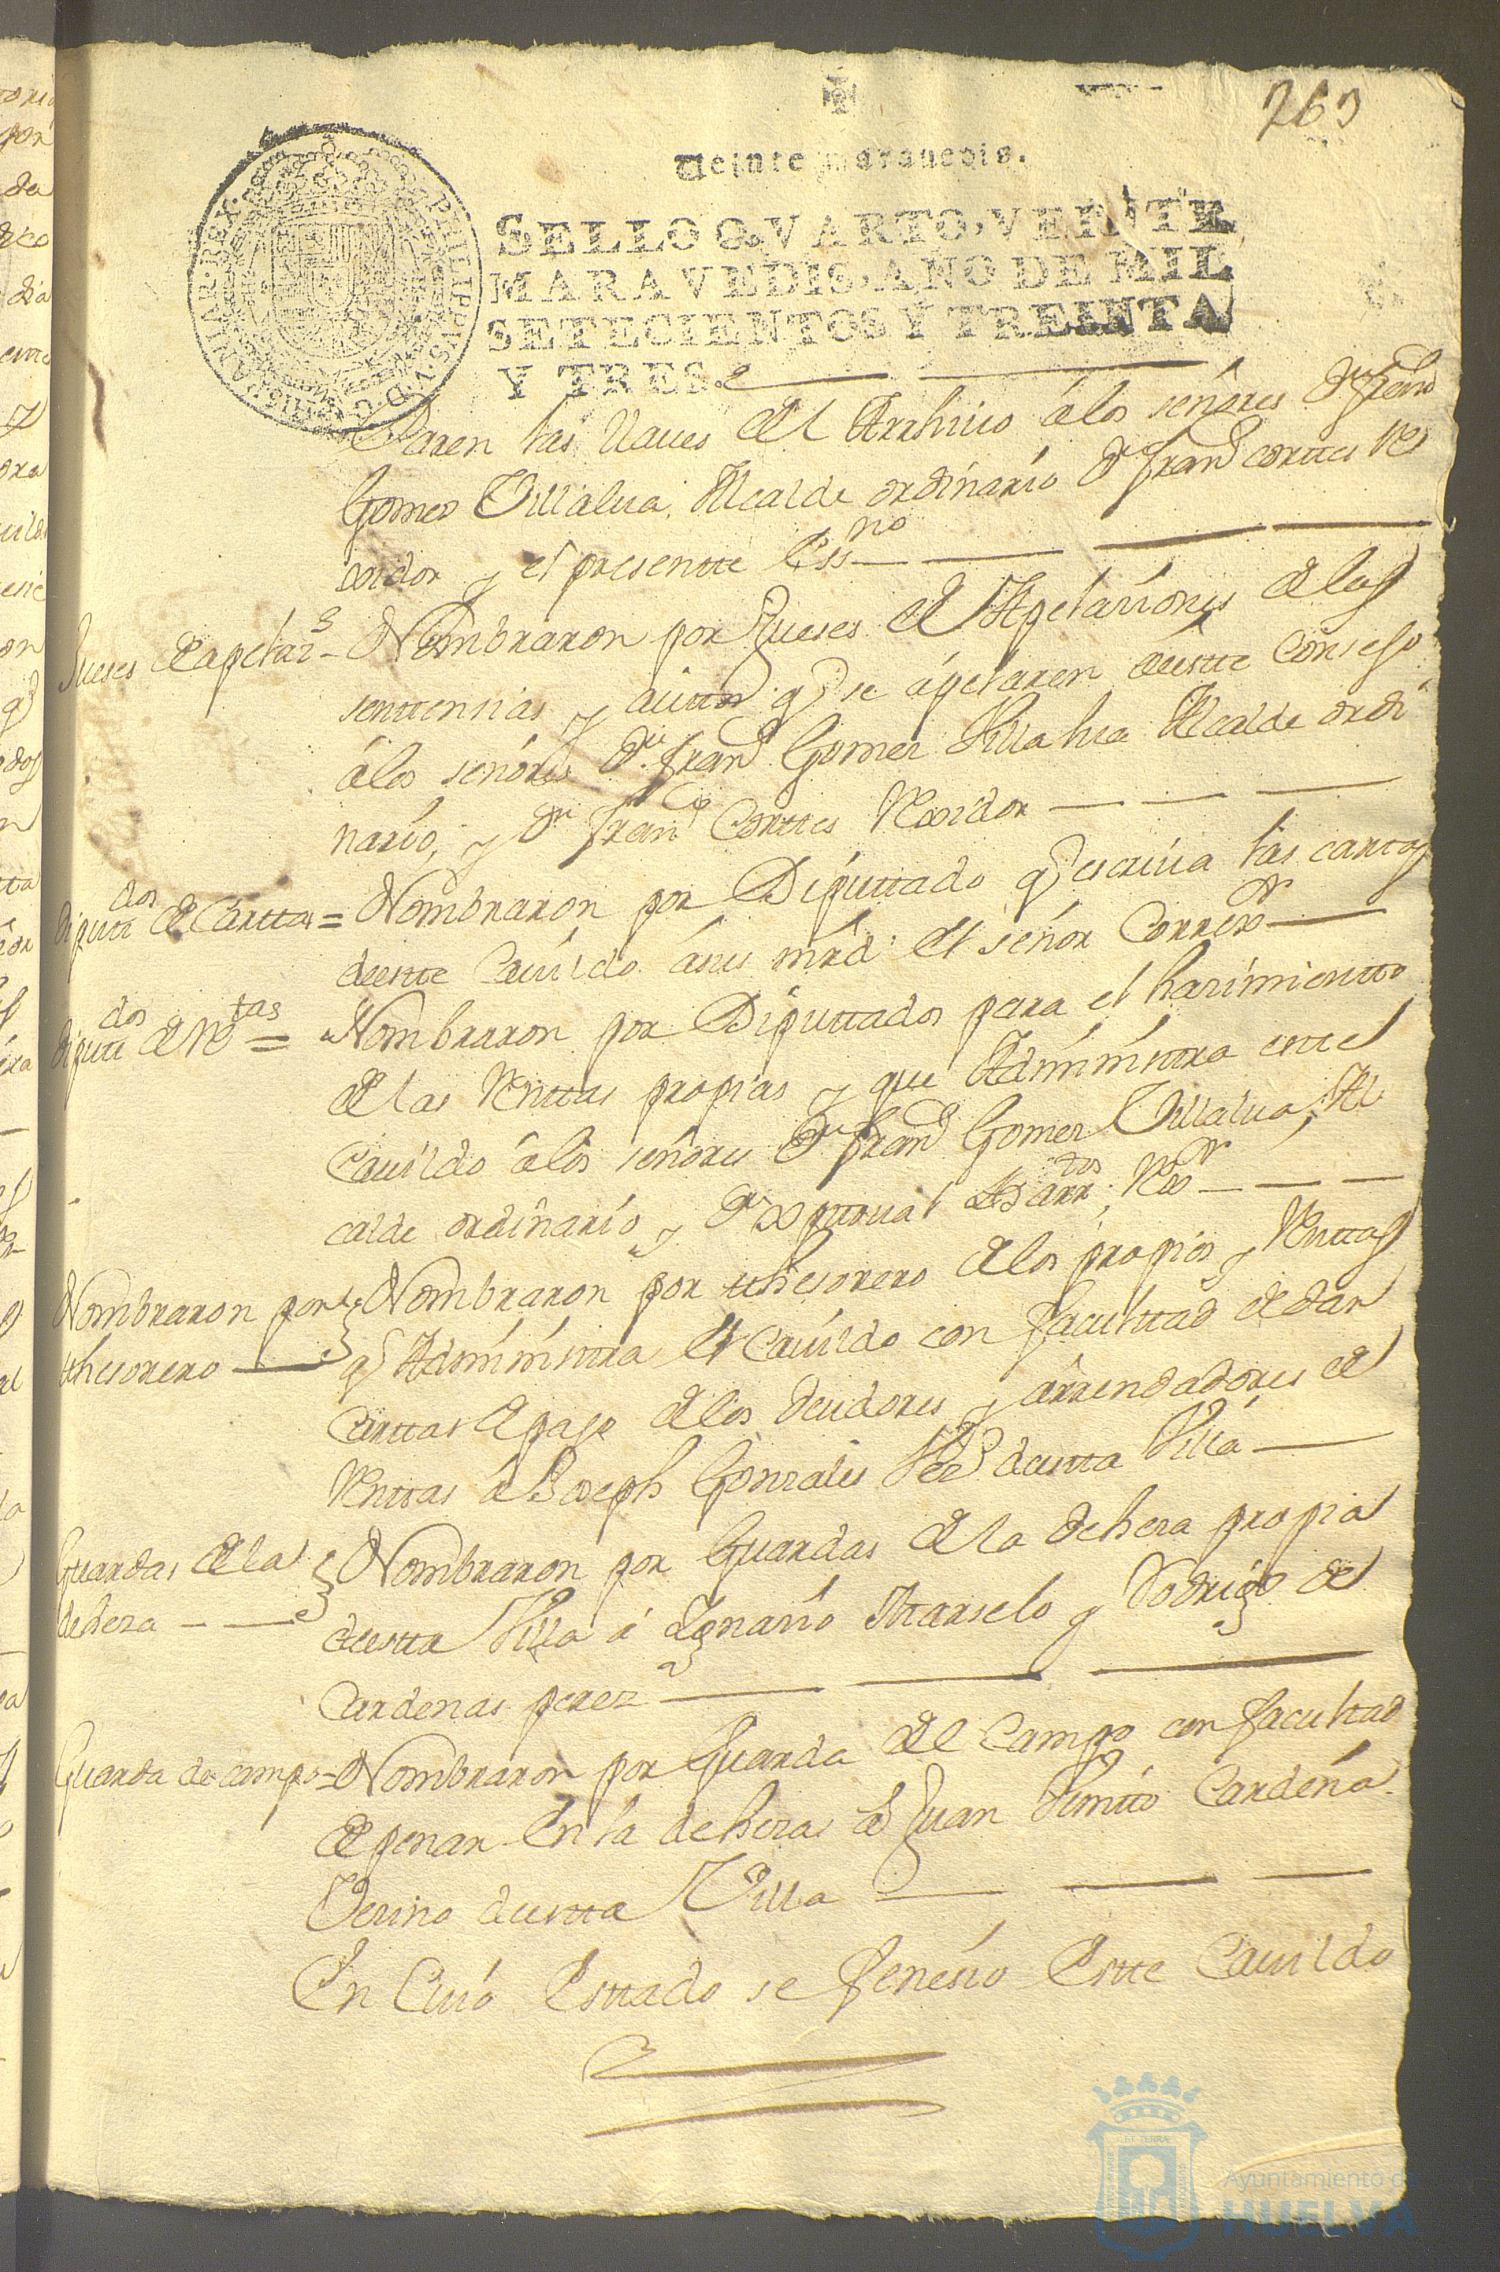 263
Veinte maravedis.
SELLO QVARTO, VEINTE
MARAVEDIS, AÑO DE MIL
SETECIENTOS Y TREINTA
Y TRES.
PHILIPPVS V D G HISPANIAR REX
las llaues del Archiuo â los señores Dn. Franco
Gomes Villalua Alcalde ordinario Dn Franco corttes Re
xidor y el presentte Essno
Jueses de apelazs - Nombraron por Jueses de Apelaziones de las
senttensias y auttos q se apelaren de estte Consejo
â los señores Dn Franco Gomes Villalua Alcalde ordi
nario, y Dn Franco Corttes Rexidor
Diputtdos de Carttas = Nombraron por Diputtado q escriua las carttas
de estte Cauildo â su magd el señor Correxr
Diputtdos de Rttas = Nombraron por Diputtados para el hazimientto
de las Renttas propias y que Administra estte
Cauildo â los señores Dn Franco Gomez Villalua Al
calde ordinario y Dn Xptoual Barrtos Rexr
Nombraron por thesorero } Nombraron por thesorero de los propios y Renttas
q Administra el Cauildo con faculttad de dar
Carttas de pago de los deudores y arrendadores de
Renttas â Joseph Gonzales Vezo de estta Villa
Guardas de la dehesa } Nombraron por Guardas de la dehesa propia
de estta Villa â Ignazio Marselo y Rodrigo de
Cardenas perez
Guarda de campo = Nombraron por Guarda del Campo con facultad
de penar en la dehesa â Juan Benitto Cardeña
Vezino de estta Villa
En Cuio Esttado se fenesio Estte Cauildo
Ayuntamiento de
HUELVA